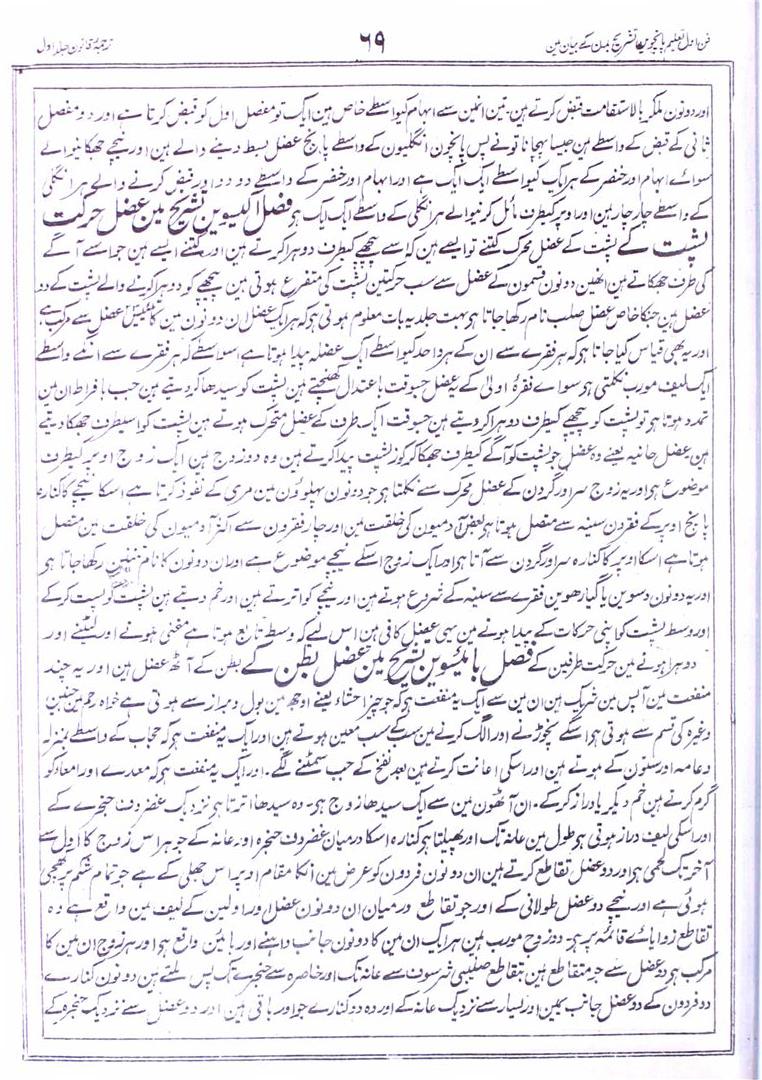 فن اول تعلیم پانچوین تشریح بدن کے بیان مین
۶۹
ترجمہ قانون جلد اول
اور دونون ملکر بالاستقامت قبض کرتے ہین تین انمین سے ابہام کیواسطے خاص ہین ایک تو مفصل اول کو قبض کرتا ہے اور دو مفصل
ثانی کے قبض کے واسطے ہین جیسا پہچانا تونے پس پانچون انگلیون کے واسطے پانچ عضل بسط دینے والے ہین اور نیچے جھکانیوالے
سوائے ابہام اور خنصر کے ہر ایک کیواسطے ایک ایک ہے اور ابہام اور خنصر کے واسطے دو دو اور قبض کرنے والے ہر انگلی
کے واسطے چار چار ہین اور اوپر کیطرف مائل کرنیوالے ہر انگلی کے واسطے ایک ایک ہر فصل اکیسوین تشریح مین عضل حرکت
پشت کے پشت کے عضل محرک کتنے تو ایسے ہین کہ اسے پیچھے کیطرف دوہرا کرتے ہین اور کتنے ایسے ہین جو اسے آگے
کی طرف جھکاتے ہین انھین دونون قسمون کے عضل سے سب حرکتین پشت کی متفرع ہوتی ہین پیچھے کو دوہرا کرنے والے پشت کے دو
عضل ہین جنکا خاص عضل صلب نام رکھا جاتا ہو بہت جلد یہ بات معلوم ہوتی ہو کہ ہر ایک عضل ان دونون مین کا عضل سے مرکب ہے
اور یہ بھی قیاس کیا جاتا ہو کہ ہر فقرے سے ان کے ہر واحد کیواسطے ایک عضلہ پیدا ہوتا ہے اسواسطے کہ ہر فقرے سے واسطے
ایک لیف مورب نکلتی ہو سوائے فقرۂ اولیٰ کے یہ عضل جسوقت باعتدال کھنچتے ہین پشت کو سیدھا کر دیتے ہین جب بافراط ان مین
تمدد ہوتا ہو تو پشت کو پیچھے کیطرف دوہرا کر دیتے ہین جسوقت ایک طرف کے عضل متحرک ہوتے ہین پشت کو اسیطرف جھکا دیتے
ہین عضل حانیہ یعنے وہ عضل جو پشت کو آگے کیطرف جھکا کر کوز پشت پیدا کرتے ہین وہ دو زوج ہین ایک زوج اوپر کیطرف
موضوع ہو اور یہ زوج سر اور گردن کے عضل محرک سے نکلتا ہو جو دونون پہلوون مین مری کے نفوذ کرتا ہے اسکا نیچے کا کنارہ
پانچ اوپر کے فقرون سینہ سے متصل ہوتا ہو بعض آدمیون کی خلقت مین اور چار فقرون سے اکثر آدمیون کی خلقت مین متصل
ہوتا ہے اسکا اوپر کا کنارہ سر اور گردن سے آتا ہو اور ایک زوج اسکے نیچے موضوع ہے اور ان دونون کا نام رکھا جاتا ہو
اور یہ دونون دسوین یا گیارھوین فقرے سے سینہ کے شروع ہوتے ہین اور نیچے کو اترتے ہین اور خم دیتے ہین پشت کو پست کرکے
اور وسط پشت کو اپنی حرکات کے پیدا ہونے مین یہی عضل کافی ہین اس لیے کہ وسط تابع ہوتا ہے منحنی ہونے اور لپٹنے اور
دوہرا ہونے مین حرکت طرفین کے فصل بائیسوین تشریح مین عضل بطن کے بطن کے آٹھ عضل ہین اور یہ چند
منفعت مین آپس مین شریک ہین ان مین سے ایک یہ منفعت ہو کہ جو چیز احشاء یعنے اوجھ مین بول و براز سے ہوتی ہے خواہ رحم مین جنین
وغیرہ کی قسم سے ہوتی ہو اسکے نچوڑنے اور الگ کرنے مین سب کے سب معین ہوتے ہین اور ایک یہ منفعت ہو کہ حجاب کے واسطے بمنزلہ
دعامہ اور ستون کے ہوتے ہین اور اسکی اعانت کرتے ہین بعد نفخ کے جب سمٹنے لگے۔ اور ایک یہ منفعت ہو کہ معدے اور امعاء کو
گرم کرتے ہین خم دیکر یا دراز کرکے۔ ان آٹھون مین سے ایک سیدھا زوج ہو۔ وہ سیدھا اترتا ہو نزدیک غضروف حنجرے کے
اور اسکی لیف دراز ہوتی ہو طول مین عانہ تک اور پھیلتا ہو کنارہ اسکا درمیان غضروف حنجرہ اور عانہ کے جوہر اس زوج کا اول سے
آخر تک لحمی ہو اور دو عضل تقاطع کرتے ہین ان دونون فردون کو عرض مین انکا مقام اوپر اس جھلی کے ہے جو تمام شکم پر کھنچی
ہوئی ہے اور نیچے دو عضل طولانی کے اور جو تقاطع درمیان ان دونون عضل اور اولین کے لیف مین واقع ہے وہ
تقاطع زوایائے قائمہ پر ہو۔ دو زوج مورب ہین ہر ایک ان مین کا دونون جانب داہنے اور بائین واقع ہو اور ہر زوج ان مین کا
مرکب ہو دو عضل سے جو متقاطع ہین بتقاطع صلیبی شرسوف سے عانہ تک اور خاصرہ سے حنجرے تک پس ملتے ہین دونون کنارے
دو فردون کے دو عضل جانب یمین اور یسار سے نزدیک عانہ کے اور وہ دو کنارے جو اور باقی ہین اور دو عضل سے نزدیک حنجرہ کے